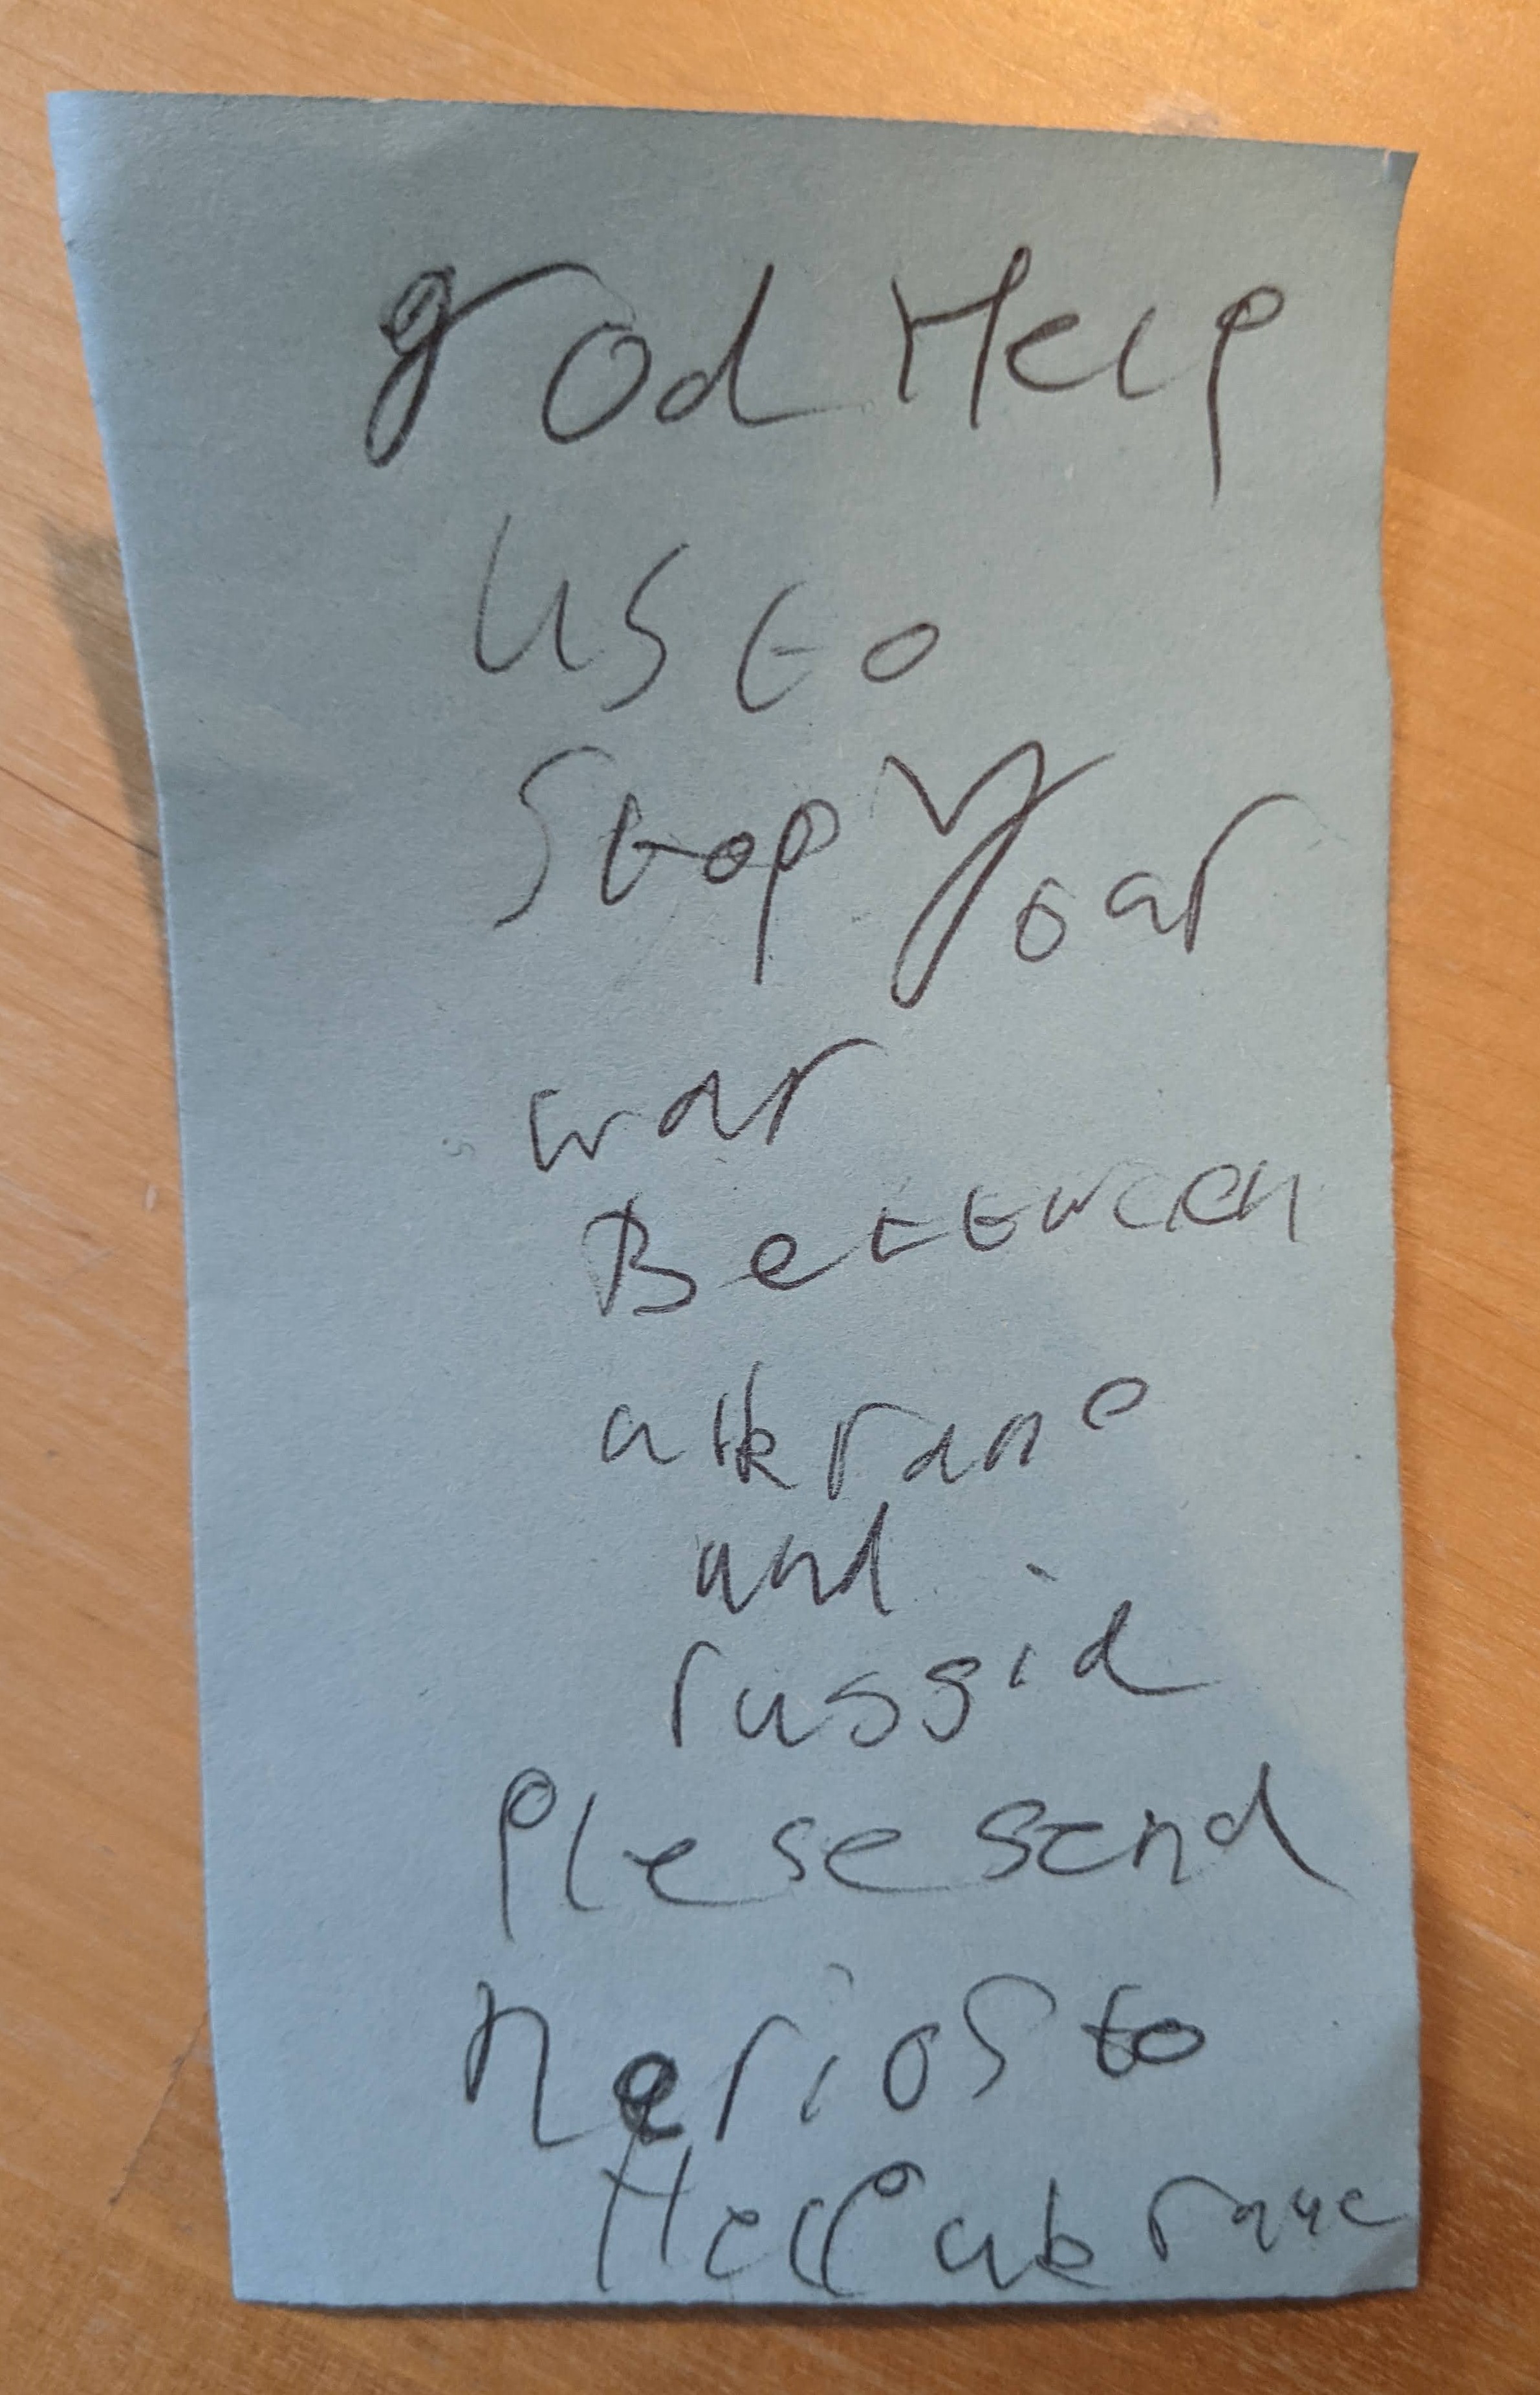 god Help
us to
stop Your
war
Between
ukrane
and
russia
Plese send
herios to
Help ukrane